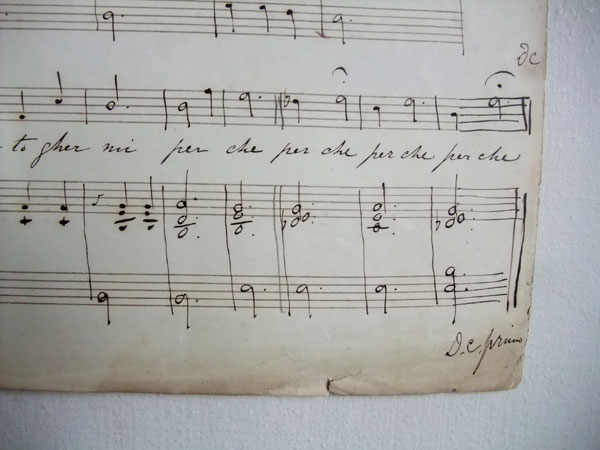 Dc
to gher mi per che per che per che per che
D.c. primo